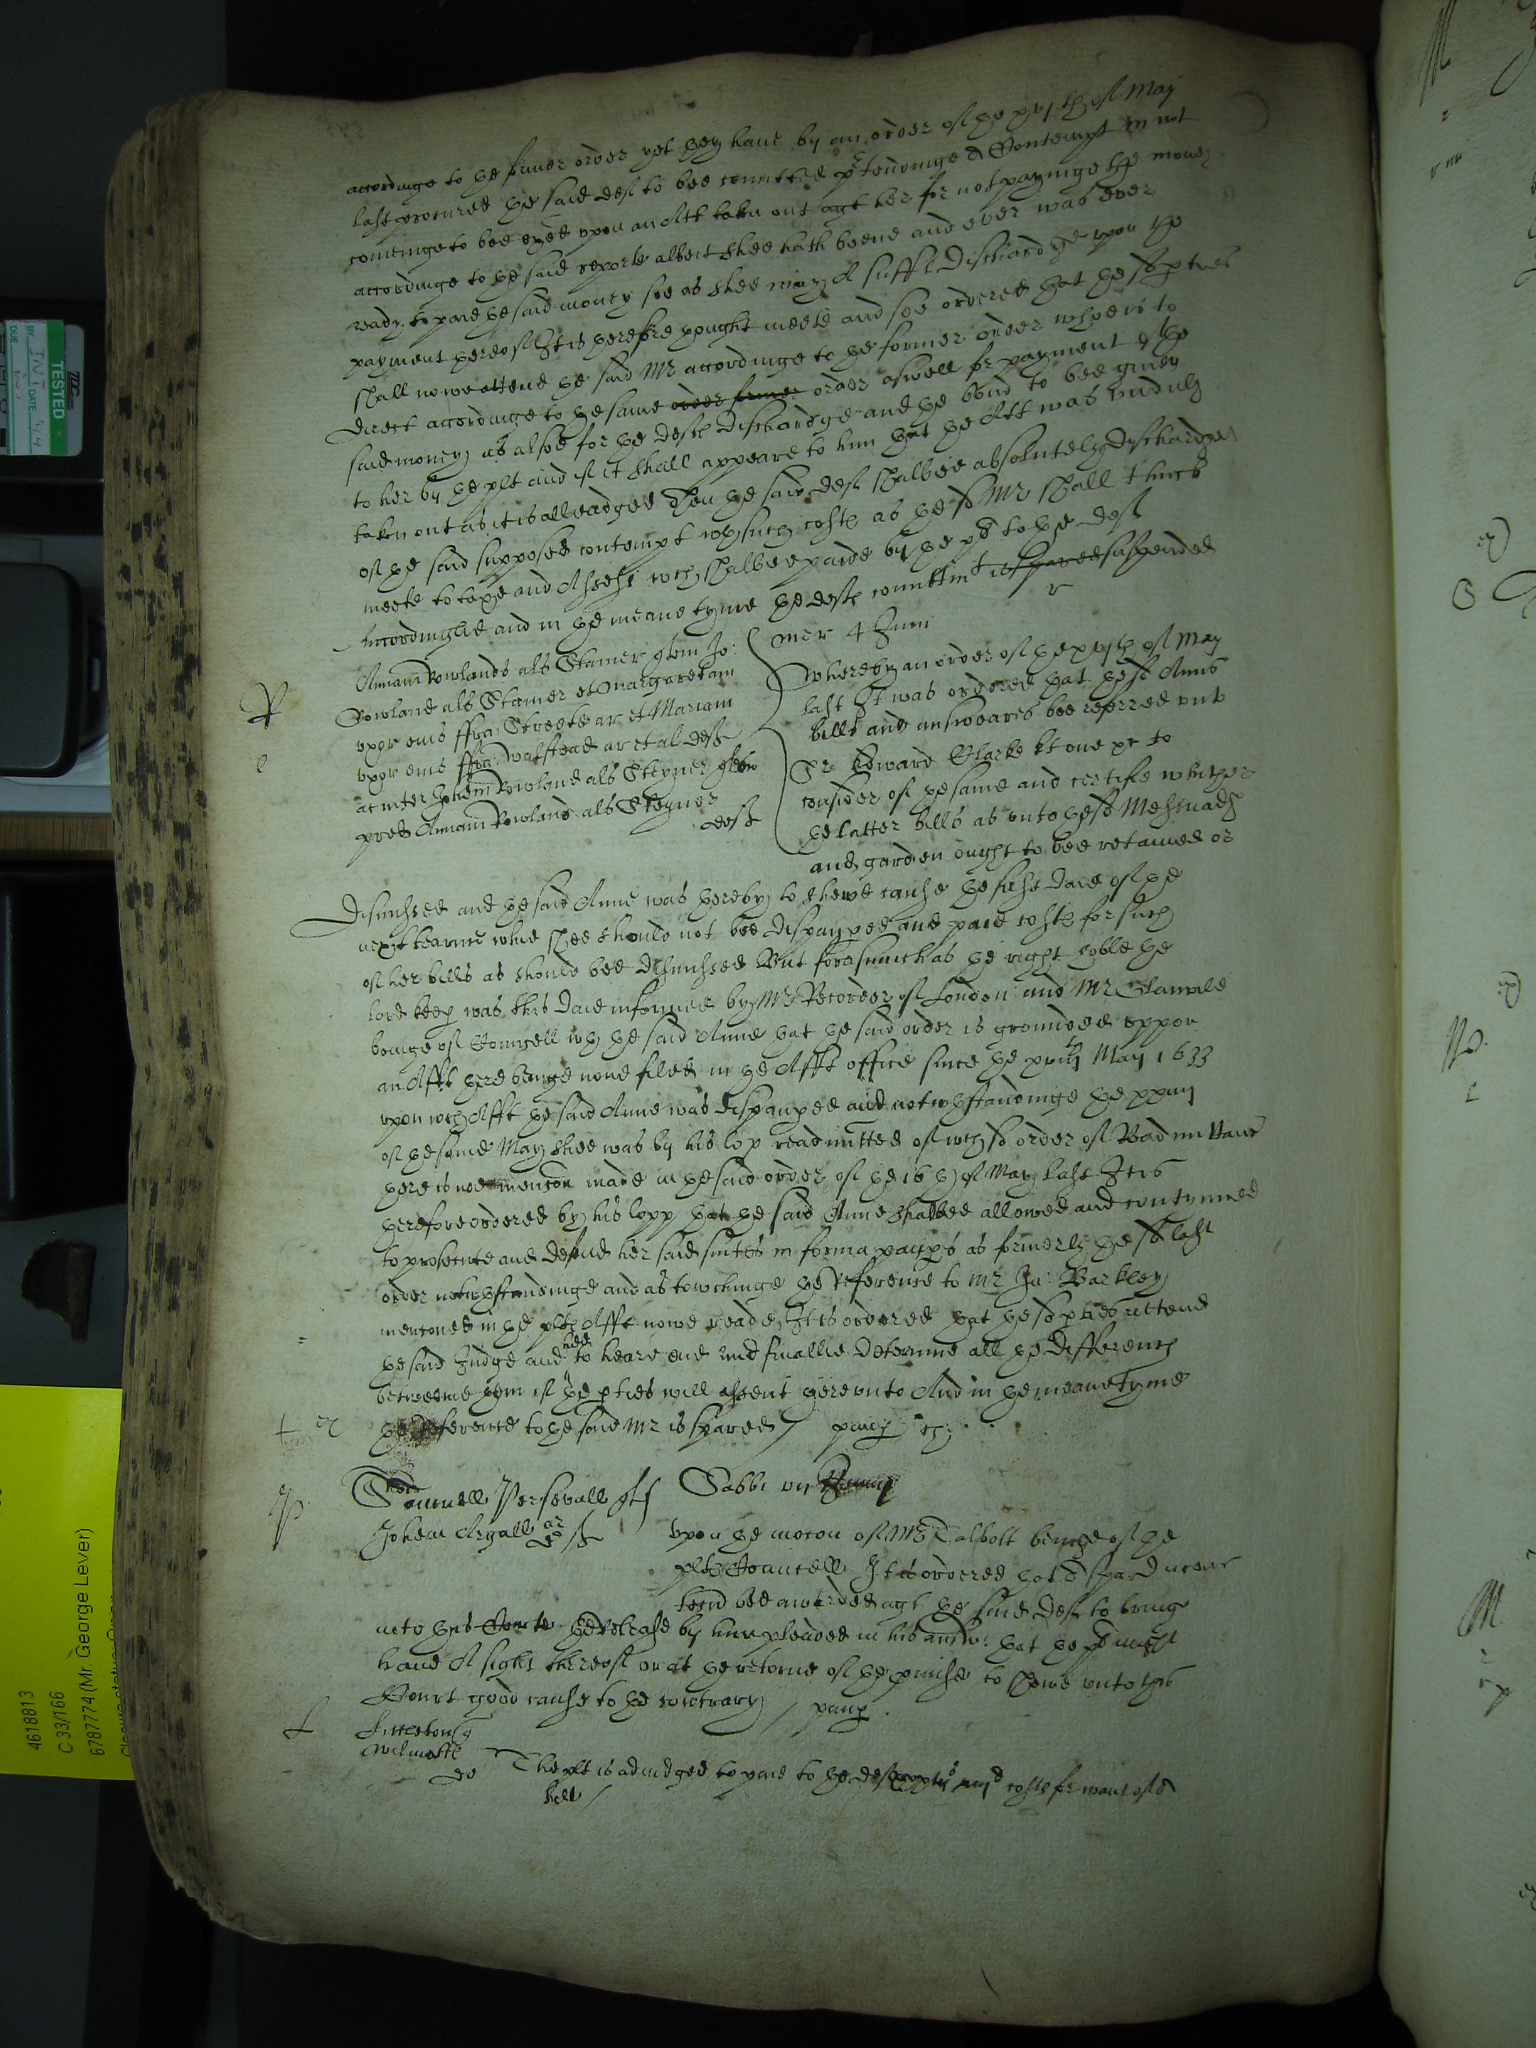 accordinge to the former order yet they have by an order of the xvjth of May
last procured the said deft to bee comitted ptendinge A Contempt in not
cominge to bee exed upon an Att taken out agt her for not payinge the money
accordinge to the said reporte albeit shee hath beene and ever was ever
ready to paie the said money soe as shee may A suffict dischardge upon the
payment thereof It is therefore thought meete and soe ordered that the sd pties
shall nowe attend the said Mr accordinge to the former order whoe is to
direct accordinge to the same order former order aswell for payment of the
said money as alsoe for the defts dischardge and the bond to bee given
to her by the plt and if it shall appeare to him that the Att was unduly
taken out as it is alleadged then the said deft shalbee absolutely discharged
of the said supposed contempt wth such costs as the sd Mr shall thinck
meete to taxe and Assesse wch shalbee paide by the pt to the deft
Accordinglie and in the meane tyme the defts comittmt is spared suspended
r
Annam Rowlands als Stamer quer Jo:
Rowland als Stamer et Margaretam
uxor eius ffra: Streete ar et Mariam
uxor eius ffra: Walstead ar et al defts
ac inter Johem Rowland als Steyner quer
pred Annam Rowland als Steyner
deft
Mer 4 Junii
Whereby an order of the xvjth of May
last It was ordered that the sd Anns
bills and answeares bee referred unto
Sr Edward Clarke kt one &c to
consider of the same and certifie whether
the latter bills as unto the sd Messuage
and garden ought to bee retained or
dismissed and the said Anne was thereby to shewe cause the first daie of the
next tearme whie shee should not bee dispaupered and paie costs for such
of her bills as should bee dismissed But forasmuch as the right hoble the
lord keep was this daie informed by Mr Recorder of London and Mr
beinge of Councell wth the said Anne that the said order is grounded uppon
an Afft there beinge none filed in the Afft office since the May 1633
upon wch Afft the said Anne was dispaupered and notwthstandinge the
of the same May shee was by his lop readmitted of wch sd order of Readmittance
there is noe mencon made in the said order of the 16th of May last It is
therefore ordered by his lopp that the said Anne shalbee allowed and contynued
to prosecute and defend her said suites in forma paupis as formerly the sd last
order notwthstandinge and as towchinge the Reference to Mr Ju: Barkley
menconed in the plts Afft nowe reade, It is ordered that the sd pties attend
the said Judge and hee to heare end and finallie determine all the differences
betweene them if the pties will assent thereunto And in the meane tyme
the Reference to the said Mr is spared /
Samuell Persevall quer
Johem Argall ar deft
Sabbi
Upon the mocon of Mr Talbott beinge of the
plts Councell It is ordered that A spa Ducens
tecu bee awarded agt the said deft to bringe
into this Courte the release by him pleaded in his answ: that the pt might
have A sight thereof or at the retorne of the to shewe unto this
Court good cause to the contrary /
The plt is adiudged to paie to the deft costs for want of A
bill /
TESTED
4618813
C 33/166
6787774 (Mr. George Lever)